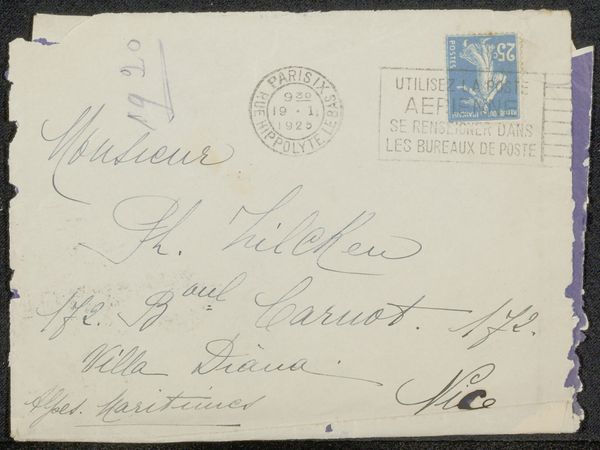 1920
PARIS IX
RUE HIPPOLYTE LEBAS
9 30
19 - 1
1925
25c
POSTES
UTILISEZ LA POSTE
AERIENNE
SE RENSEIGNER DANS
LES BUREAUX DE POSTE
Monsieur
Ph. Zilcken
172. Boul Carnot. 172.
Villa Diana.
Alpes. Maritimes Nice